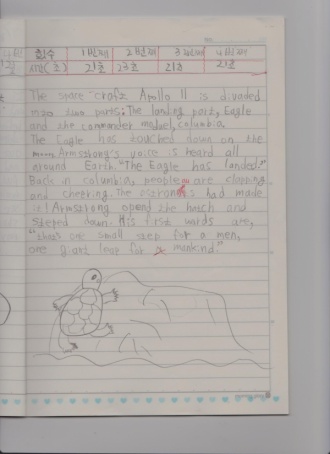 횟수 1번째 2번째 3번째 4번째
시간(초) 21초 23초 21초 21초
The space craft Apollo 11 is divaded
into two parts: The landing part, Eagle
and the commander model, columbia.
The Eagle has touched down on the
moon Armstrong's voice is heard all
around Earth. "The Eagle has landed."
Back in columbia, people are clapping
and cheering. The astronauts had made
it! Armstrong opend the hatch and
steped down. His first words are,
"thats one small step for a men,
one giant leap for mankind."